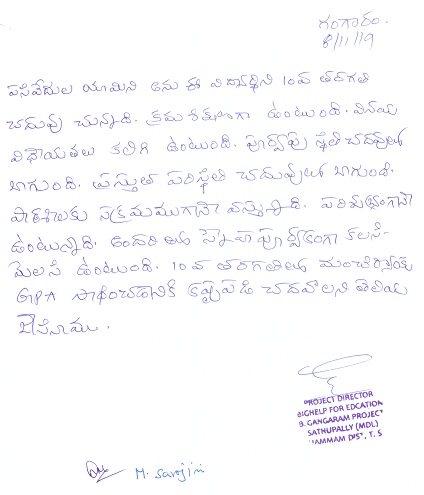 గంగారం.
8/11/19
పసివేదుల యామిని అను ఈ విద్యార్థిని 10వ తరగతి
చదువు చున్నాది. క్రమశిక్షణగా ఉంటుంది. వినయ
విధేయతలు కలిగి ఉంటుంది. పూర్వపు స్థితి చదువులో
బాగుంది. ప్రస్తుత పరిస్థితి చదువులో బాగుంది.
పాఠశాలకు సక్రమముగానే వస్తున్నాది. పరిశుభ్రంగానే
ఉంటున్నాది. అందరితో స్నేహపూర్వకంగా కలసి-
మెలసి ఉంటుంది. 10వ తరగతిలో మంచి
GPA సాధించడానికి కష్టపడి చదవాలని తెలియ
జేసినాము.
PROJECT DIRECTOR
BIGHELP FOR EDCATION
B. GANGARAM PROJECT
SATHUPALLY (MDL)
KHAMMAM DIST, T. S
M. Sarojini